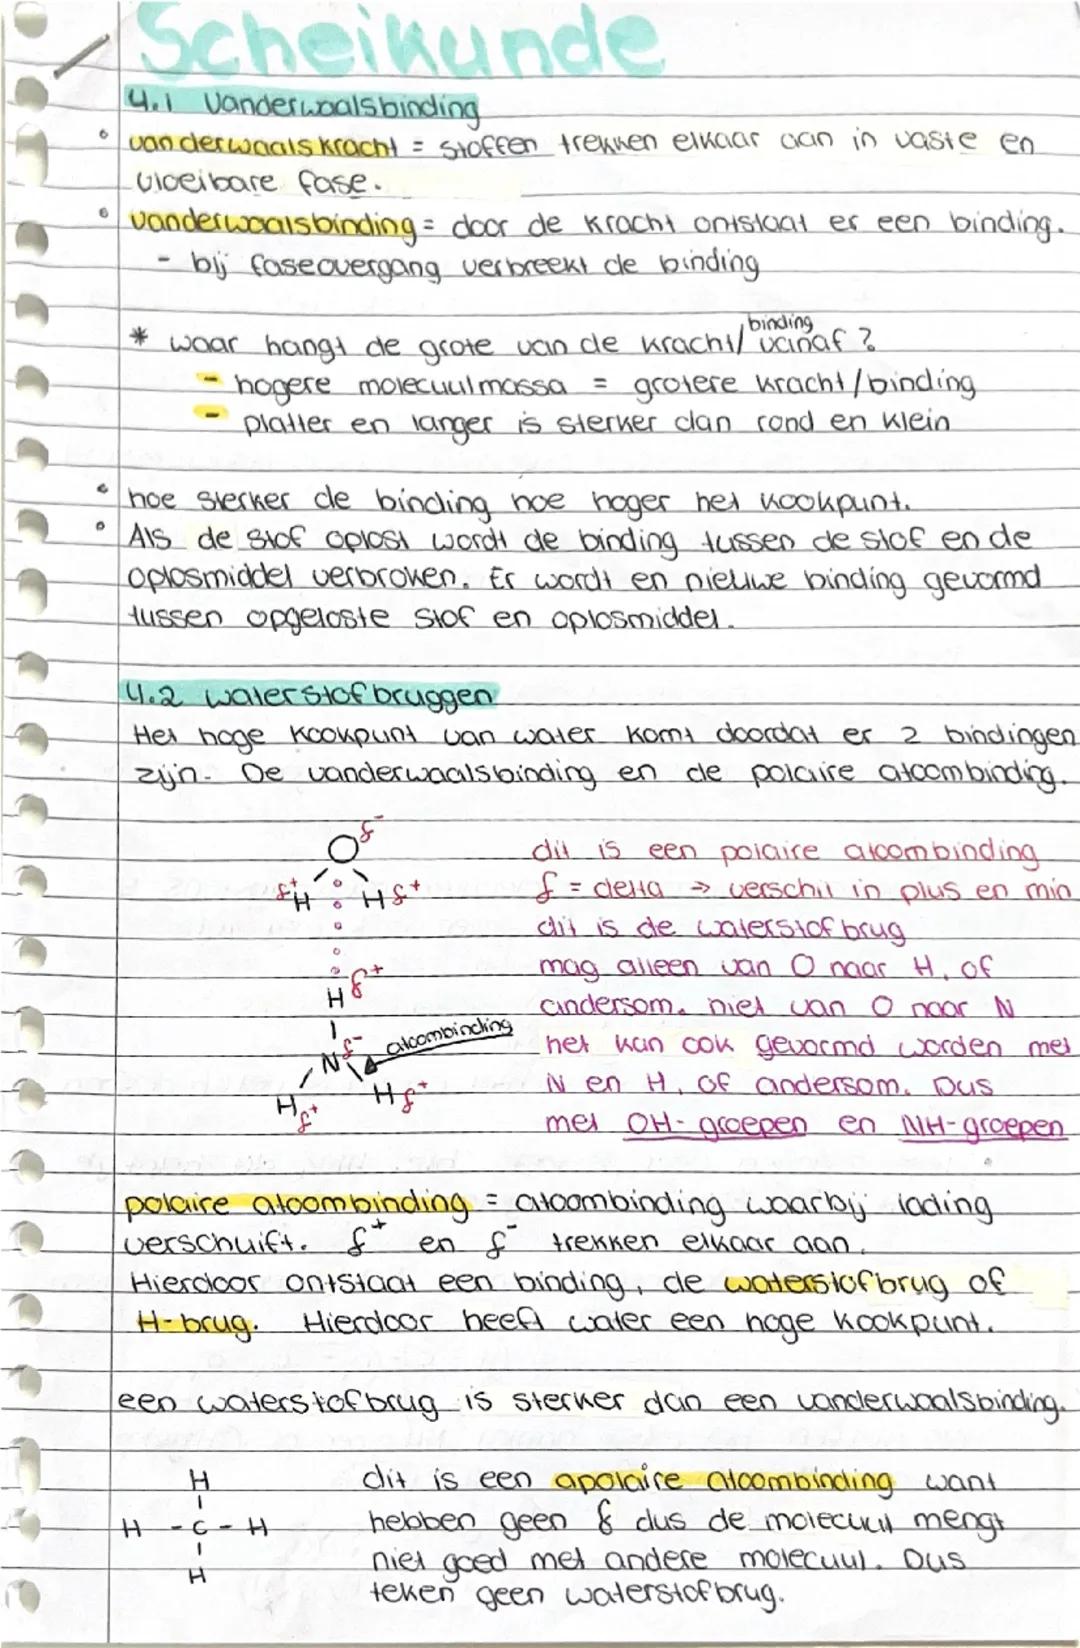 Scheikunde
4.1 Vanderwaalsbinding
vanderwaalskracht = stoffen trekken elkaar aan in vaste en
vloeibare fase.
vanderwaalsbinding = door de kracht ontstaat er een binding.
- bij faseovergang verbreekt de binding
* waar hangt de grote van de kracht/binding vanaf?
- hogere molecuulmassa = grotere kracht/binding
- platter en langer is sterker dan rond en klein
hoe sterker de binding hoe hoger het kookpunt.
Als de stof oplost wordt de binding tussen de stof en de
oplosmiddel verbroken. Er wordt en nieuwe binding gevormd
tussen opgeloste stof en oplosmiddel.
4.2 waterstofbruggen
Het hoge kookpunt van water komt doordat er 2 bindingen
zijn. De vanderwaalsbinding en de polaire atoombinding.
O δ-
δ+ H H δ+
H δ+
N δ-
atoombinding
H δ+ H δ+
dit is een polaire atoombinding
δ = delta → verschil in plus en min
dit is de waterstofbrug
mag alleen van O naar H, of
andersom. niet van O naar N
het kan ook gevormd worden met
N en H, of andersom. Dus
met OH-groepen en NH-groepen
polaire atoombinding = atoombinding waarbij lading
verschuift. δ+ en δ- trekken elkaar aan.
Hierdoor ontstaat een binding, de waterstofbrug of
H-brug. Hierdoor heeft water een hoge kookpunt.
een waterstofbrug is sterker dan een vanderwaalsbinding.
H
H - C - H
H
dit is een apolaire atoombinding want
hebben geen δ dus de molecuul mengt
niet goed met andere molecuul. Dus
teken geen waterstofbrug.